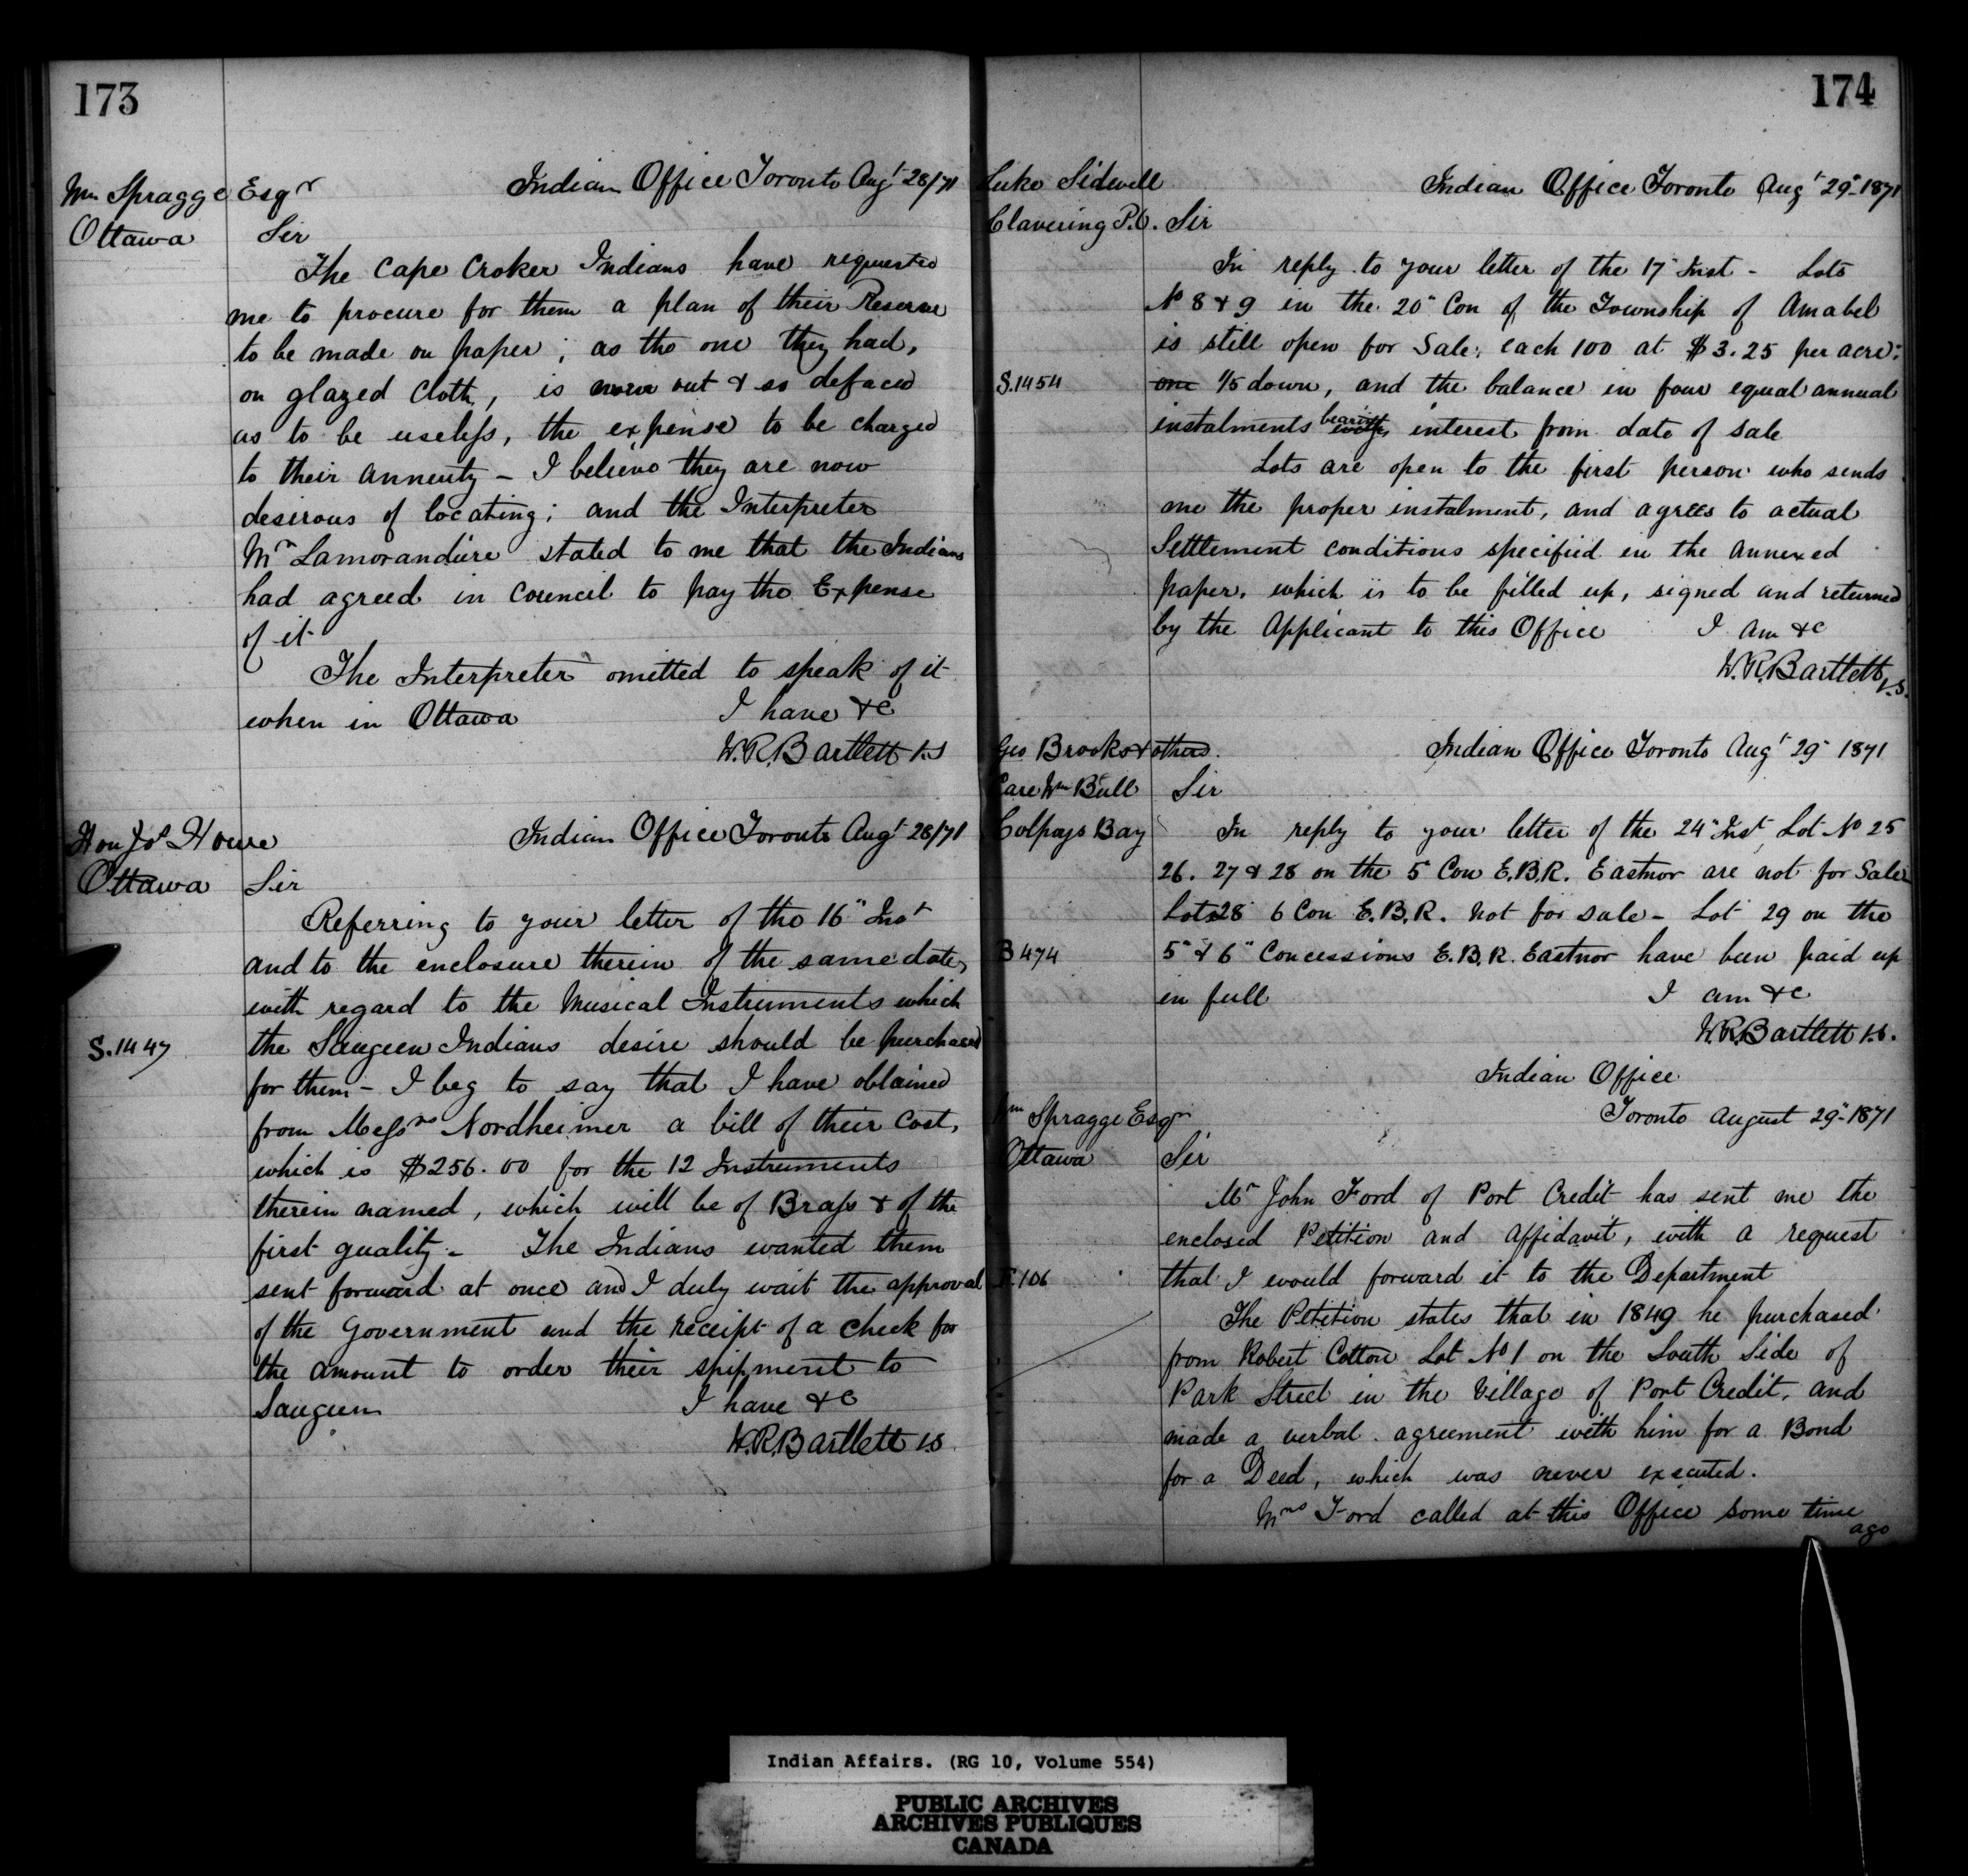 173
Wm Spragge Esqr
Indian Office Toronto Augt 28/71
Ottawa Sir
The Cape Croker Indians have requested
me to procure for them a plan of their Reserve
to be made on paper; as the one they had,
on glazed cloth, is worn out & so defaced
as to be useless, the expense to be charged
to their annuity - I believe they are now
desirous of locating; and the Interpreter
Mr Lamorandiere stated to me that the Indians
had agreed in Council to pay the Expense
of it
The Interpreter omitted to speak of it
when in Ottawa I have &c
W.R.Bartlett V.S
Hon Jos Howe
Indian Office Toronto Augt 28/71
Ottawa Sir
Referring to your letter of the 16" Inst
and to the enclosure therein of the same date,
with regard to the Musical Instruments which
S.1447 the Saugeen Indians desire should be purchased
for them - I beg to say that I have obtained
from Messrs Nordheimer a bill of their cost,
which is $256.00 for the 12 Instruments
therein named, which will be of Brass & of the
first quality - The Indians wanted them
sent forward at once and I duly wait the approval
of the Government and the receipt of a check for
the amount to order their shipment to
Saugeen I have &c
W.R.Bartlett V.S
174
Luke Sidwell
Indian Office Toronto Augt 29" 1871
Clavering P.O. Sir
In reply to your letter of the 17" Inst - Lots
No 8 & 9 in the 20" Con of the Township of Amabel
is still open for Sale, each 100 at $3.25 per acre;
S.1454 one 1/5 down, and the balance in four equal annual
instalments bearing with interest from date of sale
Lots are open to the first person who sends
me the proper instalment, and agrees to actual
Settlement conditions specified in the annexed
paper, which is to be filled up, signed and returned
by the Applicant to this Office I am &c
W.R.Bartlett V.S.
Geo Brooks & others.
Indian Office Toronto Augt 29" 1871
Care Wm Bull Sir
Colpoys Bay In reply to your letter of the 24" Inst, Lot No 25
26. 27 & 28 on the 5" Con E.B.R. Eastnor are not for Sale
Lots 28 6 Con E.B.R. not for sale - Lot 29 on the
B474 5" & 6" Concessions E.B.R. Eastnor have been paid up
in full I am &c
W.R.Bartlett V.S.
Indian Office
Wm Spragge Esqr
Toronto August 29" 1871
Ottawa Sir
Mr John Ford of Port Credit has sent me the
enclosed Petition and Affidavit, with a request
F.106 that I would forward it to the Department
The Petition states that in 1849 he purchased
from Robert Cotton Lot No 1 on the South Side of
Park Street in the Village of Port Credit, and
made a verbal agreement with him for a Bond
for a Deed, which was never executed.
Mrs Ford called at this Office some time
ago
Indian Affairs. (RG 10, Volume 554)
PUBLIC ARCHIVES
ARCHIVES PUBLIQUES
CANADA